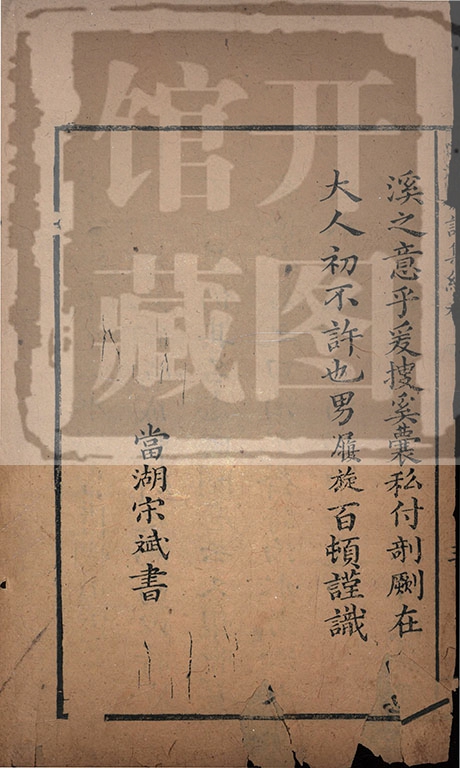 溪之意乎爰搜奚囊私付剞劂在
大人初不許也男履旋百頓謹識
當湖宋斌書
开图
馆藏